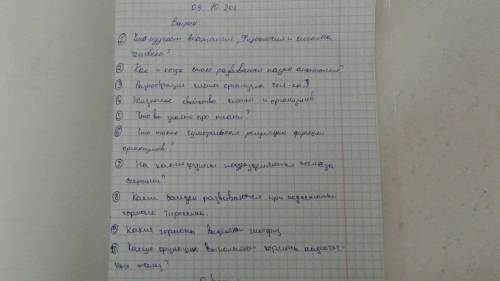 03. 10. 201
Вопрос
① Что изучает анатомия, Физиология и гигиена
человека?
② Как и когда стала развиваться наука анатомия?
③ Разнообразие клеток организма чел-ка?
④ Жизненные свойства клетки и организмов
⑤ Что вы знаете про ткани?
⑥ Что такое гуморальная регуляция функции
организмов?
⑦ На какие группы подразделяются железа
секреции?
⑧ Какие болезни развиваются при недостатке
гормона тироксина.
⑨ Какие гормоны выделяет гипофиз
⑩ Какую функцию выполняют гормоны надпочеч-
ных желез?